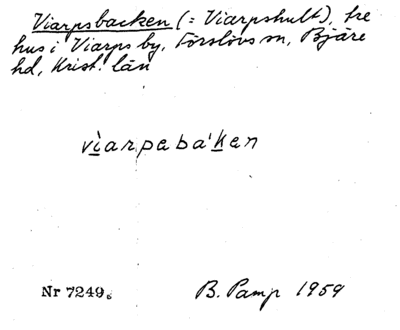 Viarpsbacken (= Viarpshult), tre
hus i Viarps by, Förslövs sn, Bjäre
hd, Krist. län
vìarpsbáken
Nr 7249.
B. Pamp 1959